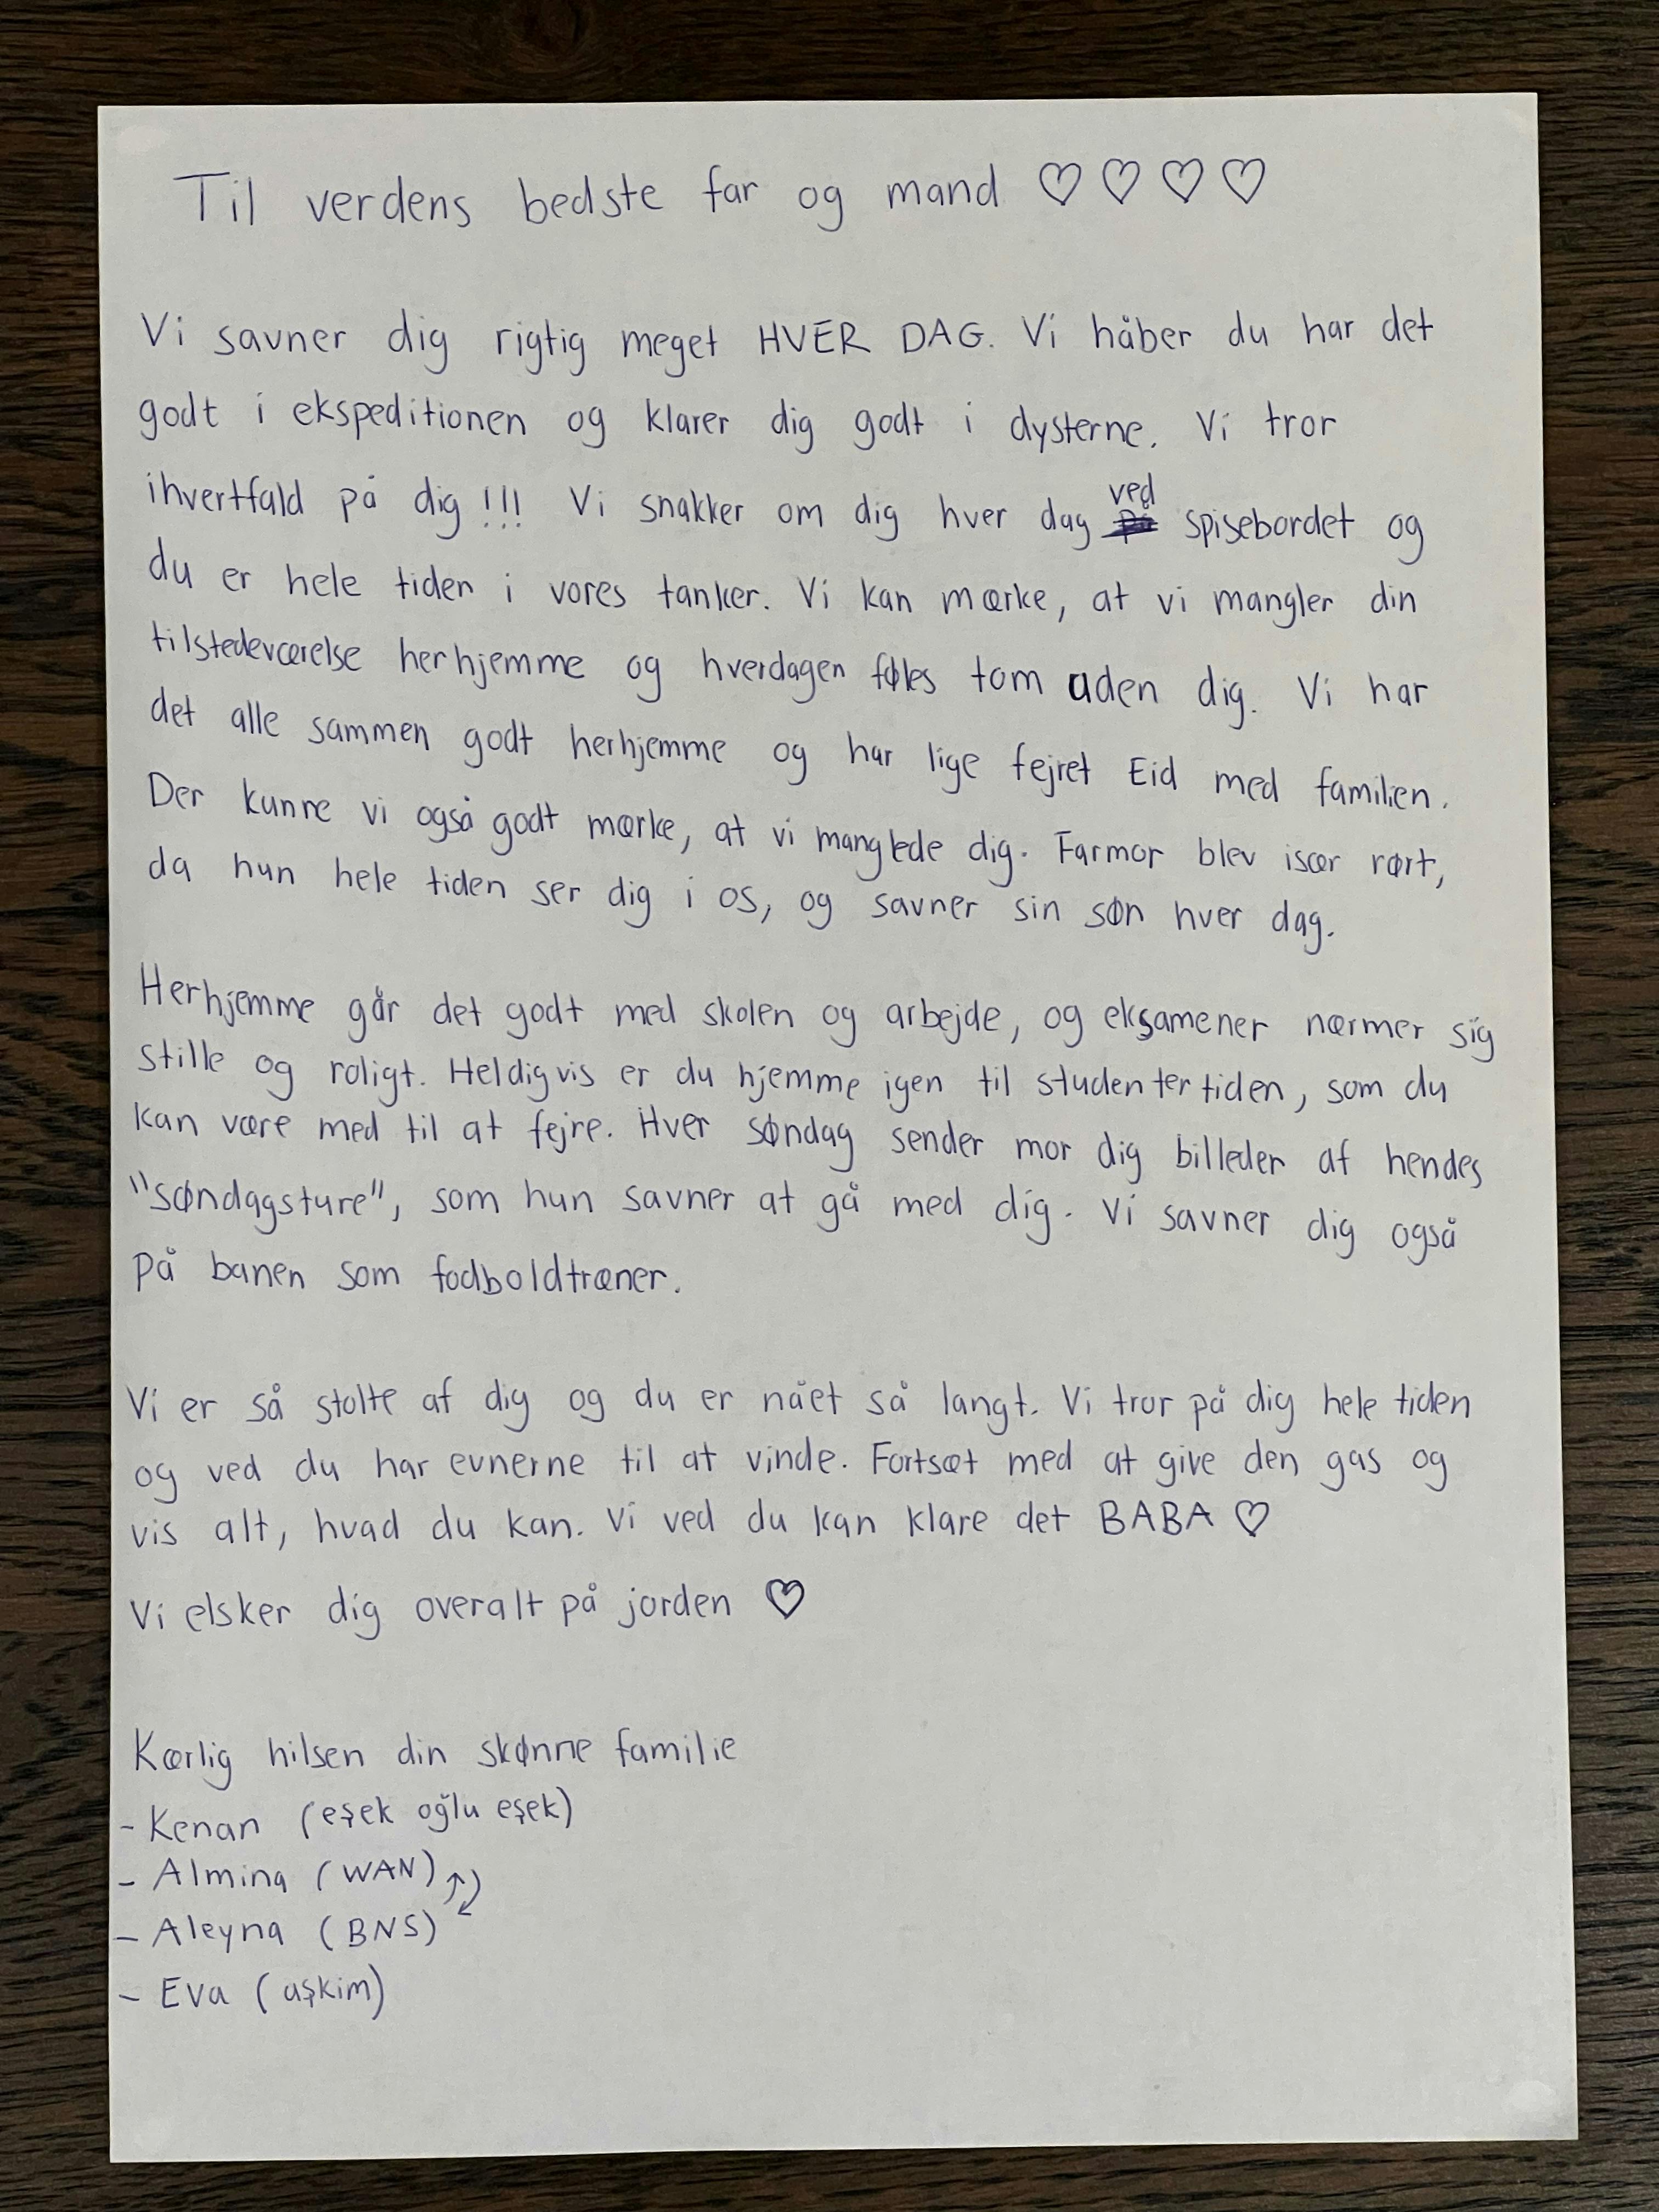 Til verdens bedste far og mand ♡ ♡ ♡ ♡
Vi savner dig rigtig meget HVER DAG. Vi håber du har det
godt i ekspeditionen og klarer dig godt i dysterne. Vi tror
ihvertfald på dig!!! Vi snakker om dig hver dag ved spisebordet og
du er hele tiden i vores tanker. Vi kan mærke, at vi mangler din
tilstedeværelse herhjemme og hverdagen føles tom uden dig. Vi har
det alle sammen godt herhjemme og har lige fejret Eid med familien.
Der kunne vi også godt mærke, at vi manglede dig. Farmor blev især rørt,
da hun hele tiden ser dig i os, og savner sin søn hver dag.
Herhjemme går det godt med skolen og arbejde, og eksamener nærmer sig
stille og roligt. Heldigvis er du hjemme igen til studentertiden, som du
kan være med til at fejre. Hver søndag sender mor dig billeder af hendes
"søndagsture", som hun savner at gå med dig. Vi savner dig også
på banen som fodboldtræner.
Vi er så stolte af dig og du er nået så langt. Vi tror på dig hele tiden
og ved du har evnerne til at vinde. Fortsæt med at give den gas og
vis alt, hvad du kan. Vi ved du kan klare det BABA ♡
Vi elsker dig overalt på jorden ♡
Kærlig hilsen din skønne familie
- Kenan (eşek oğlu eşek)
- Almina (WAN)
- Aleyna (BNS)
- Eva (aşkim)